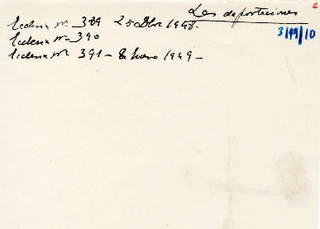 Las deportaciones
2
Ecclesia nº. 389 25 Dbre 1948.-
3/49/10
Ecclesia nº 390
Ecclesia nº 391 - 8 Enero 1949 -